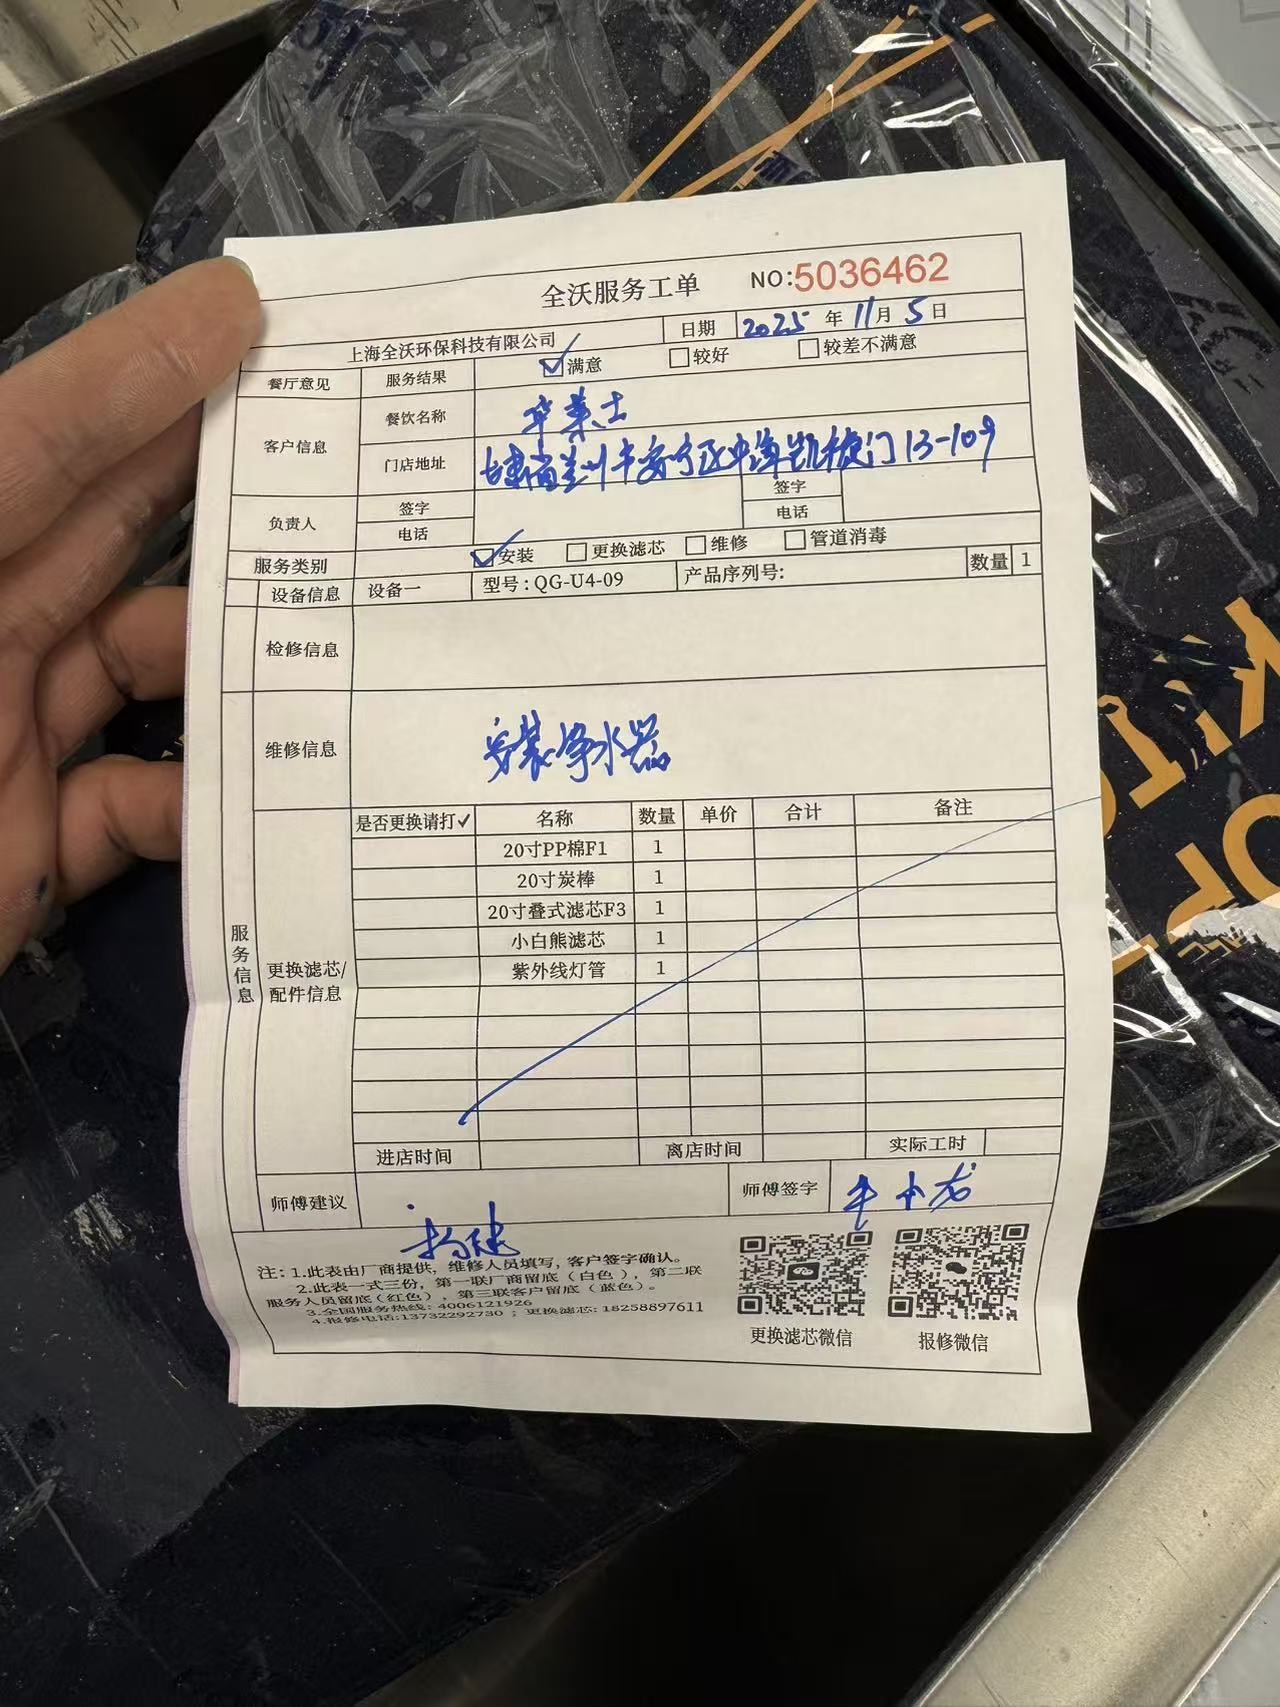 全沃服务工单 NO:5036462
上海全沃环保科技有限公司 日期 2025 年 11 月 5 日
餐厅意见 服务结果 满意 较好 较差不满意
客户信息 餐饮名称 华莱士
门店地址 甘肃省兰州市安宁区中海凯旋门13-109
负责人 签字 签字
电话 电话
服务类别 安装 更换滤芯 维修 管道消毒
设备信息 设备一 型号:QG-U4-09 产品序列号: 数量 1
检修信息
维修信息 安装净水器
服务信息
更换滤芯/配件信息
是否更换请打✓ 名称 数量 单价 合计 备注
20寸PP棉F1 1
20寸炭棒 1
20寸叠式滤芯F3 1
小白熊滤芯 1
紫外线灯管 1
进店时间 离店时间 实际工时
师傅建议 师傅签字
注: 1.此表由厂商提供，维修人员填写，客户签字确认。
2.此表一式三份，第一联厂商留底（白色），第二联
服务人员留底(红色)，第三联客户留底（蓝色）。
3.全国服务热线: 4006121926
4.报修电话:13732292730 ; 更换滤芯: 18258897611
更换滤芯微信 报修微信